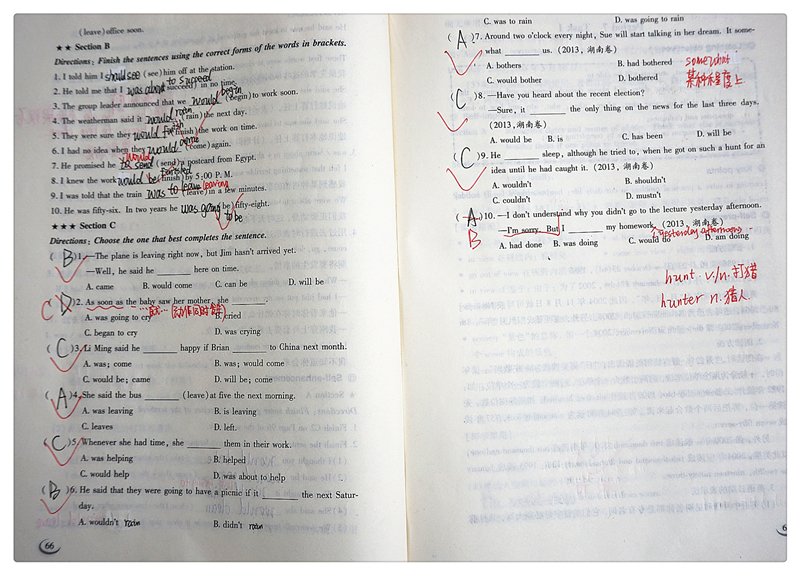 (leave) office soon.
★★ Section B
Directions: Finish the sentences using the correct forms of the words in brackets.
1. I told him I should see (see) him off at the station.
2. He told me that I was about to succeed (succeed) in no time.
3. The group leader announced that we would begin (begin) to work soon.
4. The weatherman said it would rain (rain) the next day.
5. They were sure they would finish (finish) the work on time.
6. I had no idea when they would come (come) again.
7. He promised he would send (send) a postcard from Egypt.
8. I knew the work would be finished (finish) by 5:00 P. M.
9. I was told that the train was to leave leaving (leave) in a few minutes.
10. He was fifty-six. In two years he was going to be (be) fifty-eight.
★★★ Section C
Directions: Choose the one that best completes the sentence.
( B )1. —The plane is leaving right now, but Jim hasn't arrived yet.
—Well, he said he ________ here on time.
A. came B. would come C. can be D. will be
C ( D )2. As soon as the baby saw her mother, she ________.
A. was going to cry B. cried
C. began to cry D. was crying
( C )3. Li Ming said he ________ happy if Brian ________ to China next month.
A. was; come B. was; would come
C. would be; came D. will be; come
( A )4. She said the bus ________ (leave) at five the next morning.
A. was leaving B. is leaving
C. leaves D. left.
( C )5. Whenever she had time, she ________ them in their work.
A. was helping B. helped
C. would help D. was about to help
( B )6. He said that they were going to have a picnic if it ________ the next Satur-
day.
A. wouldn't rain B. didn't rain
66
C. was to rain D. was going to rain
( A )7. Around two o'clock every night, Sue will start talking in her dream. It some-
what ________ us. (2013, 湖南卷)
A. bothers B. had bothered somewhat
C. would bother D. bothered 某种程度上
( C )8. —Have you heard about the recent election?
—Sure, it ________ the only thing on the news for the last three days.
(2013, 湖南卷)
A. would be B. is C. has been D. will be
( C )9. He ________ sleep, although he tried to, when he got on such a hunt for an
idea until he had caught it. (2013, 湖南卷)
A. wouldn't B. shouldn't
C. couldn't D. mustn't
( A )10. —I don't understand why you didn't go to the lecture yesterday afternoon.
B —I'm sorry. But I ________ my homework. (2013, 湖南卷)
yesterday afternoon
A. had done B. was doing C. would do D. am doing
hunt. v./n. 打猎
hunter n. 猎人